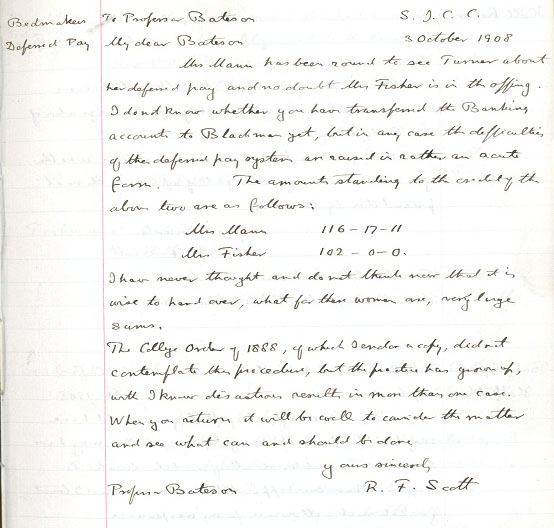 Bedmakers
Deferred Pay
To Professor Bateson
S. J. C. C.
My dear Bateson
3 October 1908
Mrs Mann has been round to see Turner about
her deferred pay and no doubt Mrs Fisher is in the offing.
I dont know whether you have transferred the Banking
accounts to Blackman yet, but in any case the difficulties
of the deferred pay system are raised in rather an acute
form. The amounts standing to the credit of the
above two are as follows:
Mrs Mann 116-17-11
Mrs Fisher 102-0-0.
I have never thought and do not think now that it is
wise to hand over, what for these women are, very large
sums.
The College Order of 1888, of which I enclose a copy, did not
contemplate this procedure, but the practice has grown up,
with I know disastrous results in more than one case.
When you return it will be well to consider the matter
and see what can and should be done
yours sincerely
Professor Bateson
R. F. Scott